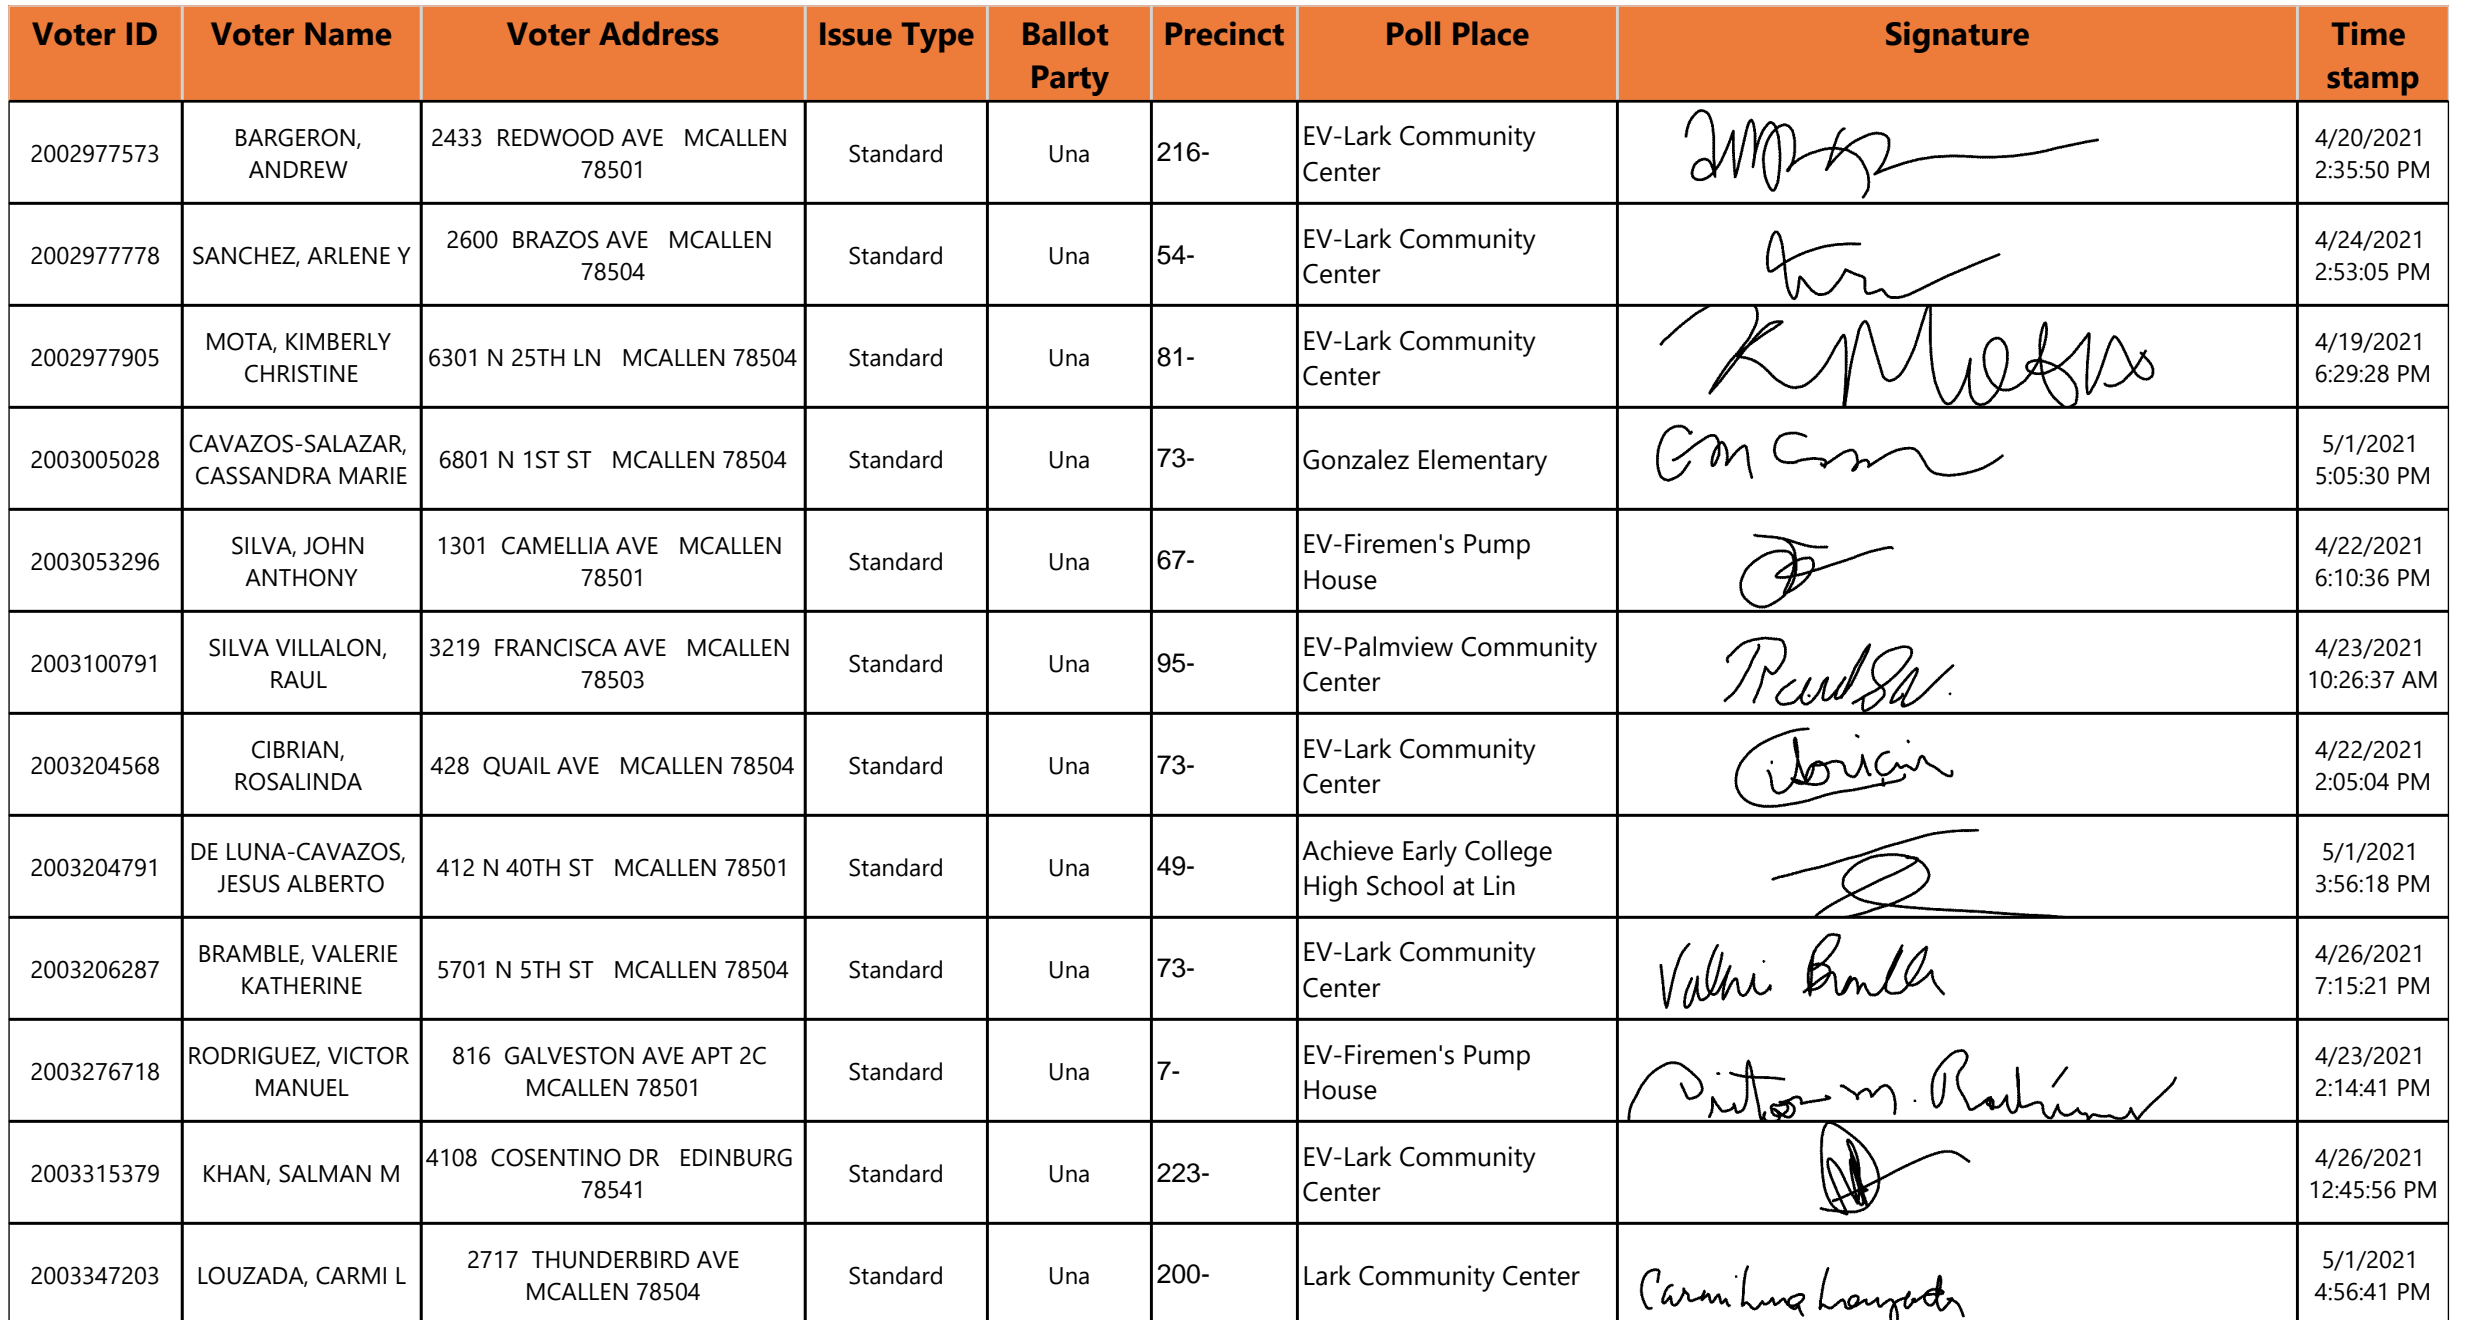 Voter ID Voter Name Voter Address Issue Type Ballot Party Precinct Poll Place Signature Time stamp
2002977573 BARGERON, ANDREW 2433 REDWOOD AVE MCALLEN 78501 Standard Una 216- EV-Lark Community Center 4/20/2021 2:35:50 PM
2002977778 SANCHEZ, ARLENE Y 2600 BRAZOS AVE MCALLEN 78504 Standard Una 54- EV-Lark Community Center 4/24/2021 2:53:05 PM
2002977905 MOTA, KIMBERLY CHRISTINE 6301 N 25TH LN MCALLEN 78504 Standard Una 81- EV-Lark Community Center 4/19/2021 6:29:28 PM
2003005028 CAVAZOS-SALAZAR, CASSANDRA MARIE 6801 N 1ST ST MCALLEN 78504 Standard Una 73- Gonzalez Elementary 5/1/2021 5:05:30 PM
2003053296 SILVA, JOHN ANTHONY 1301 CAMELLIA AVE MCALLEN 78501 Standard Una 67- EV-Firemen's Pump House 4/22/2021 6:10:36 PM
2003100791 SILVA VILLALON, RAUL 3219 FRANCISCA AVE MCALLEN 78503 Standard Una 95- EV-Palmview Community Center 4/23/2021 10:26:37 AM
2003204568 CIBRIAN, ROSALINDA 428 QUAIL AVE MCALLEN 78504 Standard Una 73- EV-Lark Community Center 4/22/2021 2:05:04 PM
2003204791 DE LUNA-CAVAZOS, JESUS ALBERTO 412 N 40TH ST MCALLEN 78501 Standard Una 49- Achieve Early College High School at Lin 5/1/2021 3:56:18 PM
2003206287 BRAMBLE, VALERIE KATHERINE 5701 N 5TH ST MCALLEN 78504 Standard Una 73- EV-Lark Community Center 4/26/2021 7:15:21 PM
2003276718 RODRIGUEZ, VICTOR MANUEL 816 GALVESTON AVE APT 2C MCALLEN 78501 Standard Una 7- EV-Firemen's Pump House 4/23/2021 2:14:41 PM
2003315379 KHAN, SALMAN M 4108 COSENTINO DR EDINBURG 78541 Standard Una 223- EV-Lark Community Center 4/26/2021 12:45:56 PM
2003347203 LOUZADA, CARMI L 2717 THUNDERBIRD AVE MCALLEN 78504 Standard Una 200- Lark Community Center 5/1/2021 4:56:41 PM